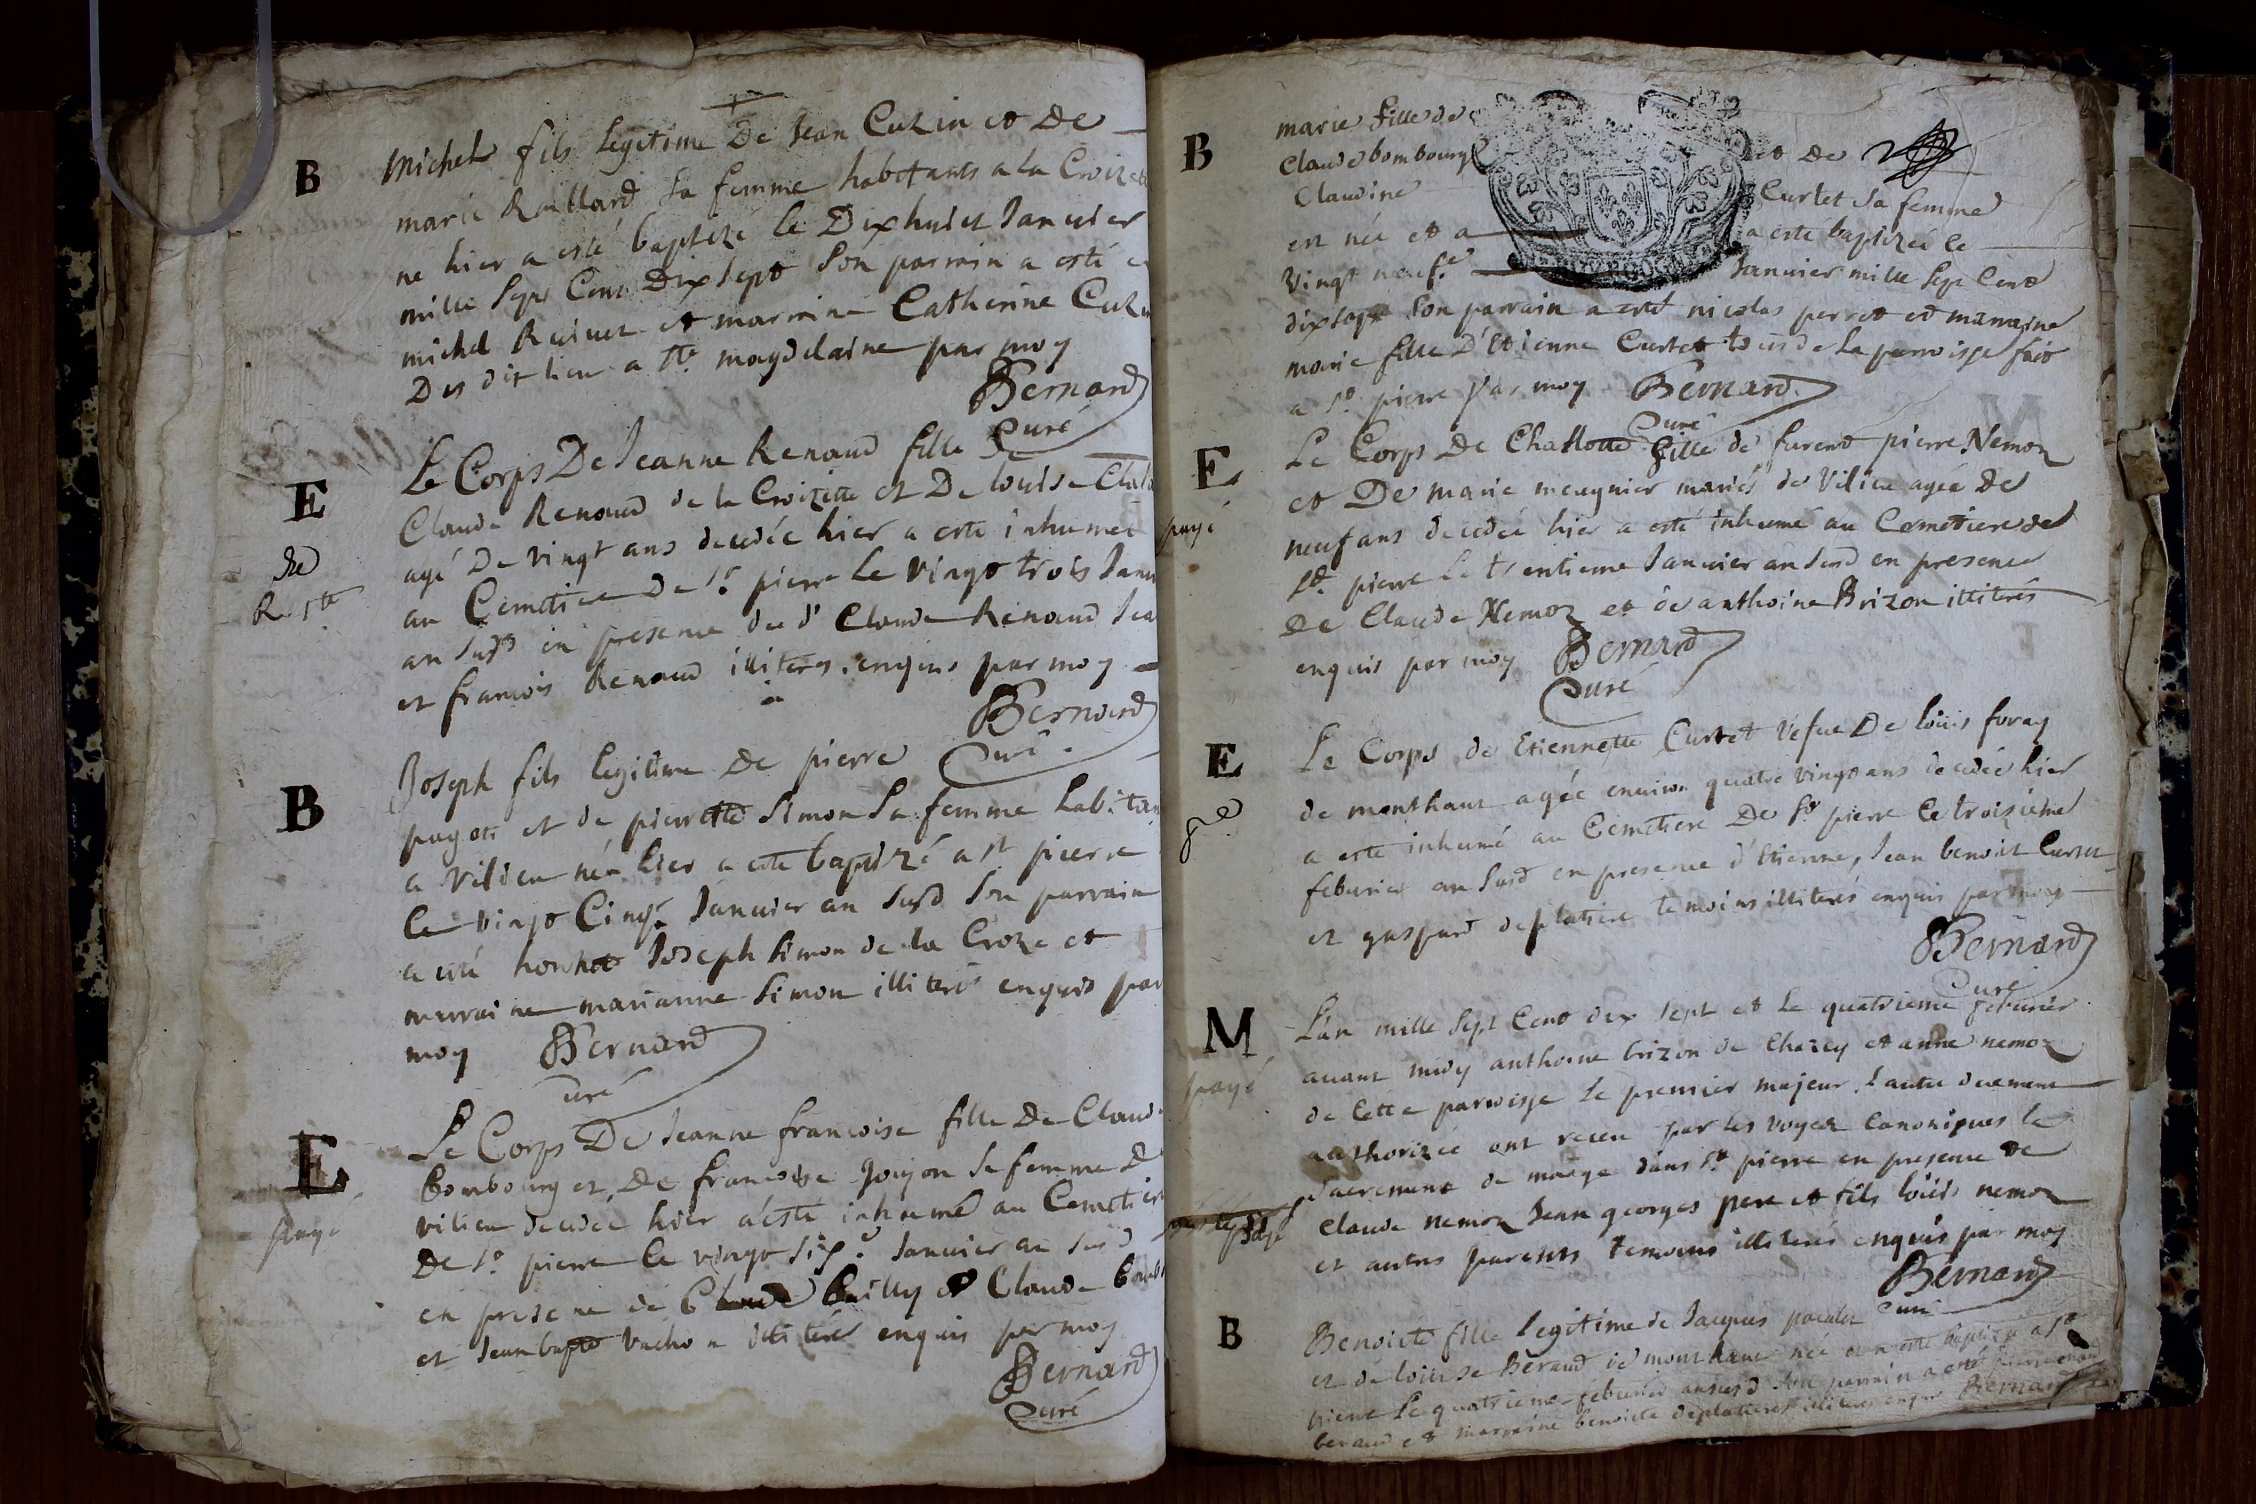 B
Michel fils legitime De Jean Cuzin et De
marie Raillard sa femme habitants a la Croizette
ne hier a esté baptizé le Dixhuict Januier
mille Sept Cent Dix Sept Son parrin a esté
michel Rainet et marrine Catherine Cuzin
Des dit lieu a Ste magdelaine par moy
Bernard
Curé
E
Le Corps De Jeanne Renaud fille de
Claude Renaud de la Croizette et De louise
agé De vingt ans decedée hier a esté inhumée
au Cemetiere De St pierre Le vingt trois Janu
an susd en presence du dt Claude Renaud
et francois Renaud illiterés enquis par moy
Bernard
Curé
B
Joseph fils legitime De pierre
pagon et de pierrette Simon Sa femme habitan
a Vilieu né hier a esté baptizé a St pierre
Le vingt Cinqe Januier an susd Son parrain
a esté Joseph Simon de la Croze et
marraine marianne Simon illiterés enquis par
moy Bernard
Curé
E
payé
Le Corps De Jeanne francoise fille De Claude
bombourg et De francoise Goujon Sa femme De
vilieu decedée hier a esté inhumé au Cemetiere
De St pierre le vingt Sixe Januier an Susd
en presence de Claude bailly et Claude bomb
et Jean bapte Vachon illiteréz enquis par moy
Bernard
Curé
B
marie fille de
Claude bombourg et De
Claudine Curtet Sa femme
est née et a a esté baptizée le
Vingt neufe Januier mille Sept Cent
dix Sept Son parrain a esté nicolas perret et maraine
marie fille D'Etienne Curtet tous de La parroisse fait
a St pierre par moy Bernard
Curé
E
payé
Le Corps De Charlotte fille de furent pierre Nemoz
et De marie meugnier mariés de Vilieu agée De
neuf ans decedée hier a esté inhumé au Cemetiere de
St pierre Le trentieme Januier an Susd en presence
De Claude Nemoz et de anthoine Brizon illiterés
enquis par moy Bernard
Curé
E
Le Corps de Etiennette Curtet Vefue De louis foray
de monthaut agée enuiron quatre vingt ans decedée hier
a esté inhumé au Cemetiere De St pierre Le troisieme
feburier an Susd en presence d'Etienne, Jean benoit Curtet
et gaspard deplatiere temoins illiterés enquis par moy
Bernard
Curé
M
payé
L'an mille Sept Cent dix Sept et Le quatrieme feburier
auant midy anthoine brizon de Chazey et anne nemoz
de Cette parroisse Le premier majeur, l'autre duement
authorizée ont receu par les voyez Canoniques le
Sacrement de mariage dans St pierre en presence De
Claude nemoz Jean georges pere et fils loüis nemoz
et autres parents temoins illiterés enquis par moy
Bernard
Curé
B
Benoicte fille Legitime de Jacques
et de louise Beraud de monthaut née et a esté baptizé a St
pierre Le quatrieme feburier an susd Son parrain a esté
beraud et marraine benoicte deplatiere illiteres enquis Bernard